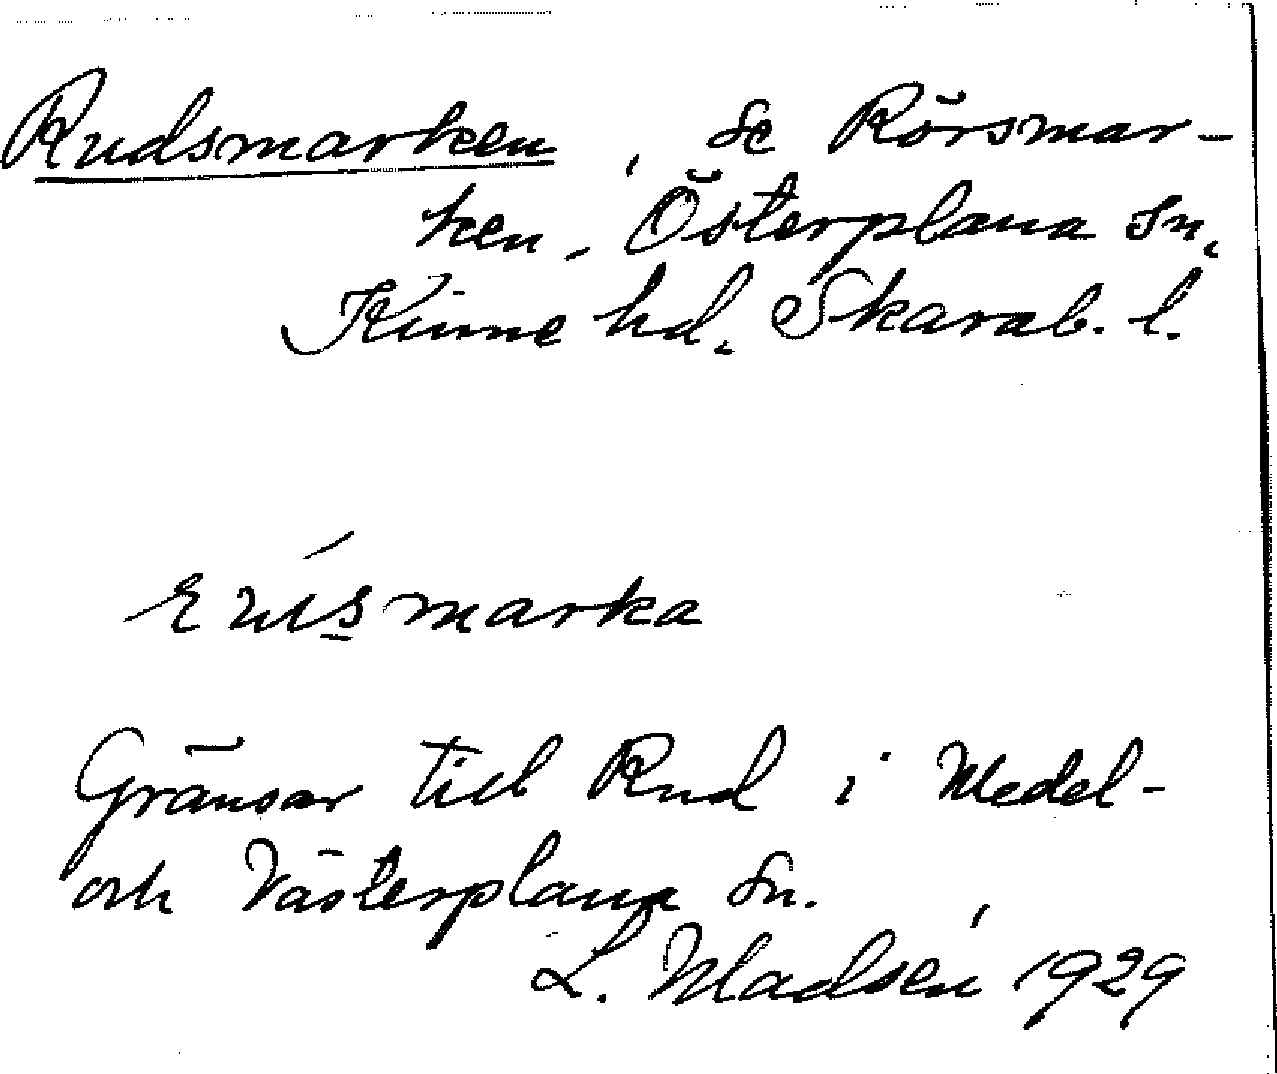 Rudsmarken, se Rörsmar-
ken, Österplana sn,
Kinne hd. Skarab. l.
marka
Gränsar till Rud i Medel-
och Västerplana sn.
L. Madsén 1929